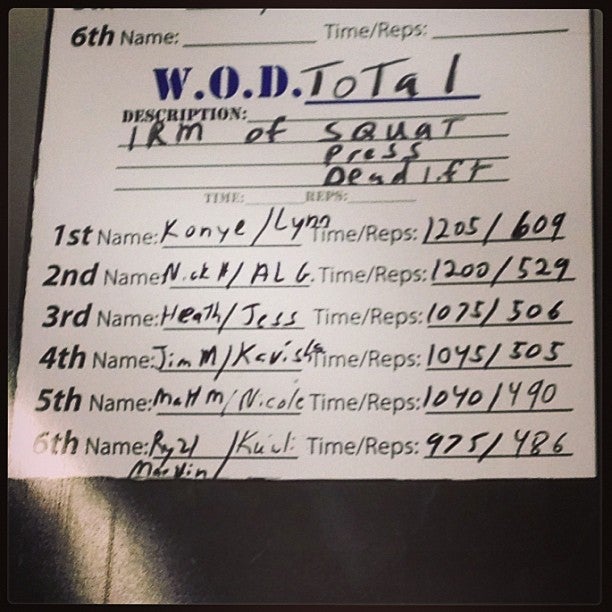 6th Name: Time/Reps:
W.O.D. ToTal
DESCRIPTION:
1RM of SQUAT
Press
Deadlift
TIME: REPS:
1st Name: Konye/Lynn Time/Reps: 1205/609
2nd Name: Nick H/ALG. Time/Reps: 1200/529
3rd Name: Heath/Jess Time/Reps: 1075/506
4th Name: Jim M/ Time/Reps: 1045/505
5th Name: Matt M/Nicole Time/Reps: 1040/490
6th Name: / Time/Reps: 975/486